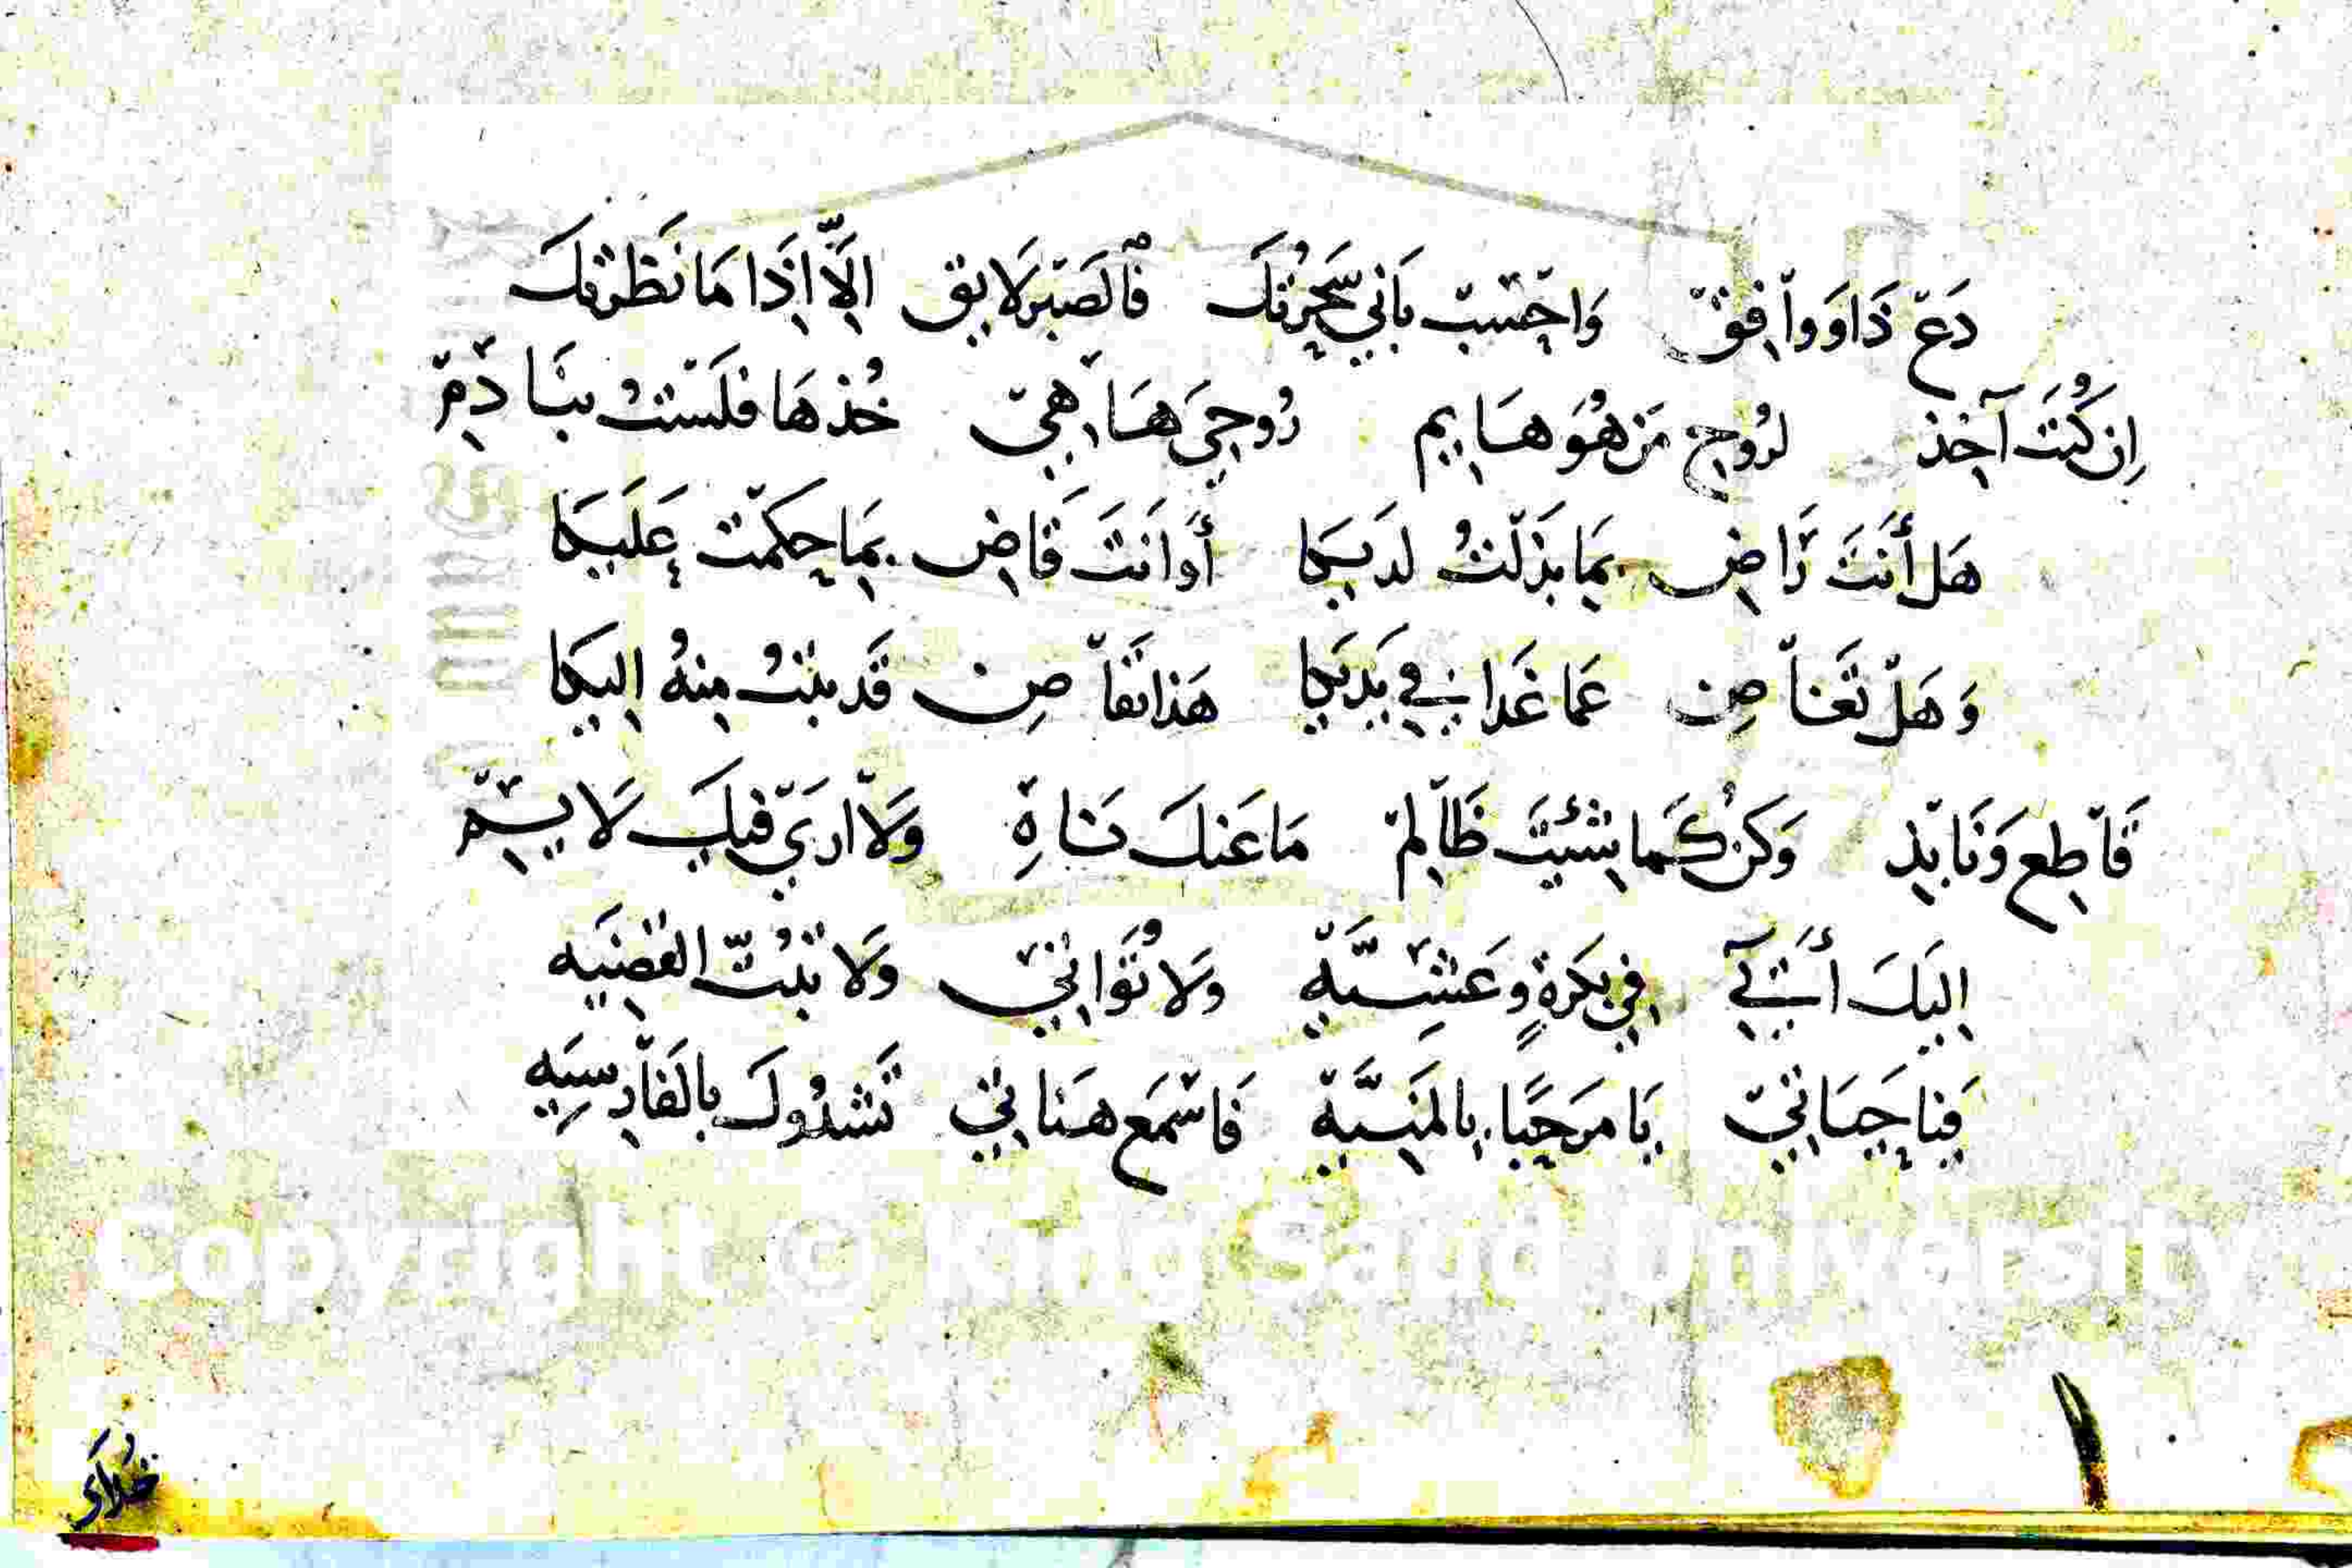 دَعْ ذَا وَوَافِقْ وَاحْتَسِبْ بَاَنِي سَحِرْتَكْ فَالْصَبْرُ لَا يَقِ اِلَّا اِذَا مَا نَظَرْتَكْ
اِنْ كُنْتَ آخِذْ لرُوحِ مَنْ هُوَ هَايِمْ رُوحِيَ هَا هِيْ خُذْهَا فَلَسْتُ بِنَادِمْ
هَلْ أَنْتَ رَاضِ بِمَا بَذَلْتُ لَدَيكَا أَوْ اَنْتَ قَاضِ بِمَا حِكَمْتَ عَلَيكَا
وَهَلْ تَغَاصِنْ عَمَا غَدَا فِي يَدَيكَا هَذَا تَقَاصِنْ قَدْ بِنْتُ مِنهُ اِلَيكَا
قَاطِعْ وَنَابِذْ وَكُنْ كَمَا شِئْتَ ظَالِمْ مَا عَنكَ نَاهِ وَلَا اَرَي فِيكَ لَايِمْ
اِلَيكَ أَشتَكِي فِي بُكَرَةٍ وَعَشِيَّةْ وَلَا تُوَانِيْ وَلَا تَبُتّ القَضِيَه
فِنَا حَيَاتِيْ يَا مَرحَبًا بِالمَنِيَّةْ فَاسْمَعْ هَنَاتِيْ تَشْدُوكَ بِالفَارِسِيَه
Copyright © King Saud University